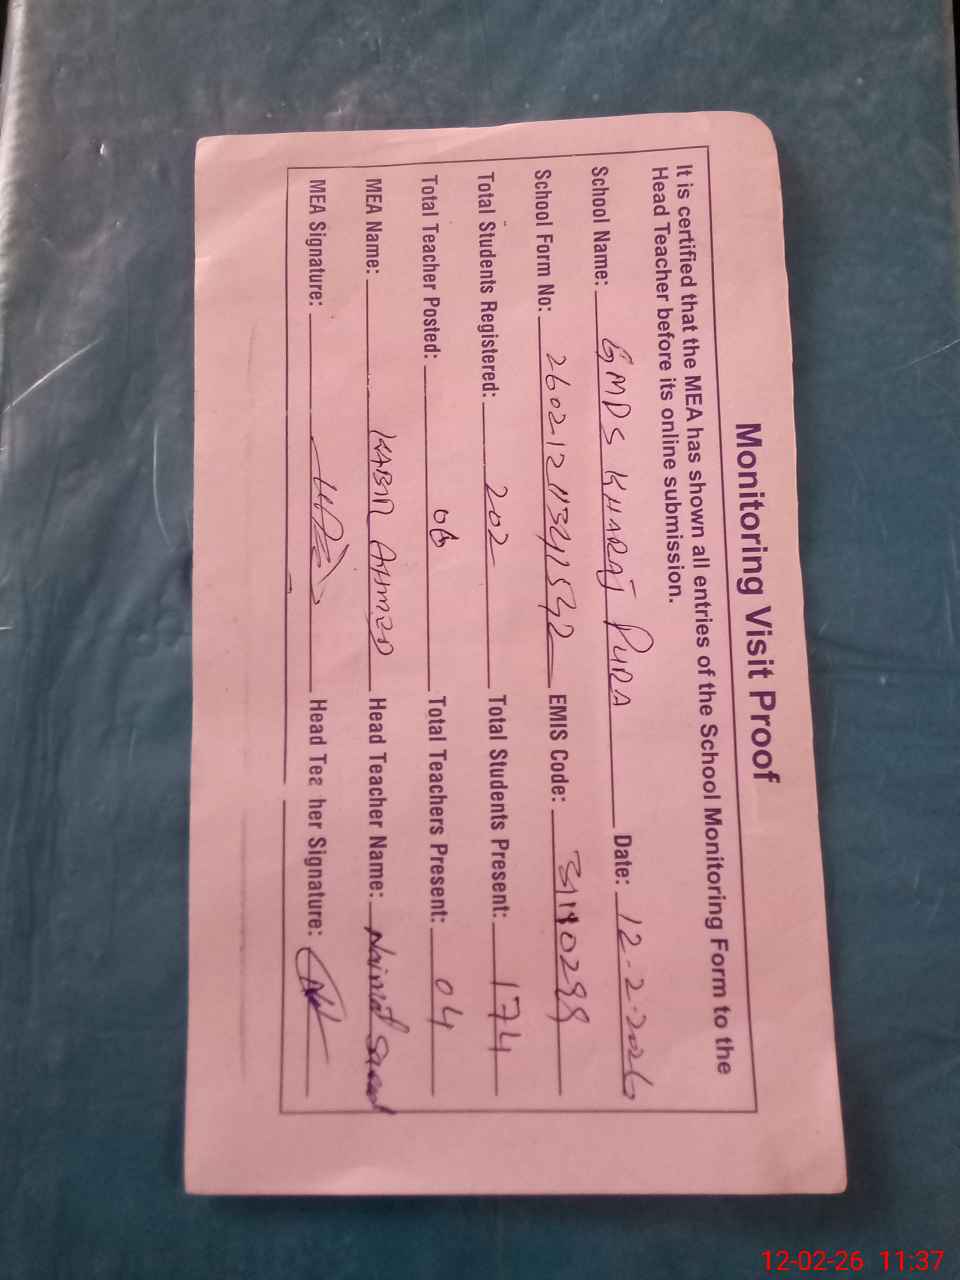 Monitoring Visit Proof
It is certified that the MEA has shown all entries of the School Monitoring Form to the
Head Teacher before its online submission.
School Name: GMPS KHARAJ PURA Date: 12-2-2026
School Form No: EMIS Code:
Total Students Registered: 202 Total Students Present: 174
Total Teacher Posted: 06 Total Teachers Present: 04
MEA Name: KABIR AHMED Head Teacher Name:
MEA Signature: Head Tea her Signature:
12-02-26 11:37